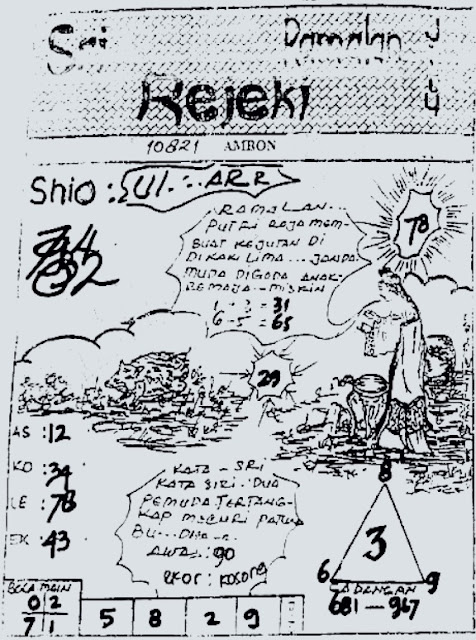 Sri Ramalan
Rejeki
10821 AMRON
Shio: Ul... ARR
RAMALAN...
PUTRI RAJA MEM-
BUAT KEJUTAN DI
DI KAKI LIMA... JANDA
MUDA DIGODA ANAK-
REMAJA-- MISKIN
1 + 2 = 31
6 - 5 = 65
78
29
AS : 12
KO : 34
LE : 78
EK : 43
KATA - SRI
KATA SIRI : DUA
PEMUDA TERTANG-
KAP
BU...
AWAS : 90
EKOR : KOSONG
8
3
6 9
CADANGAN
681 — 967
BOLA MAIN
0 2
7 1
5 8 2 9